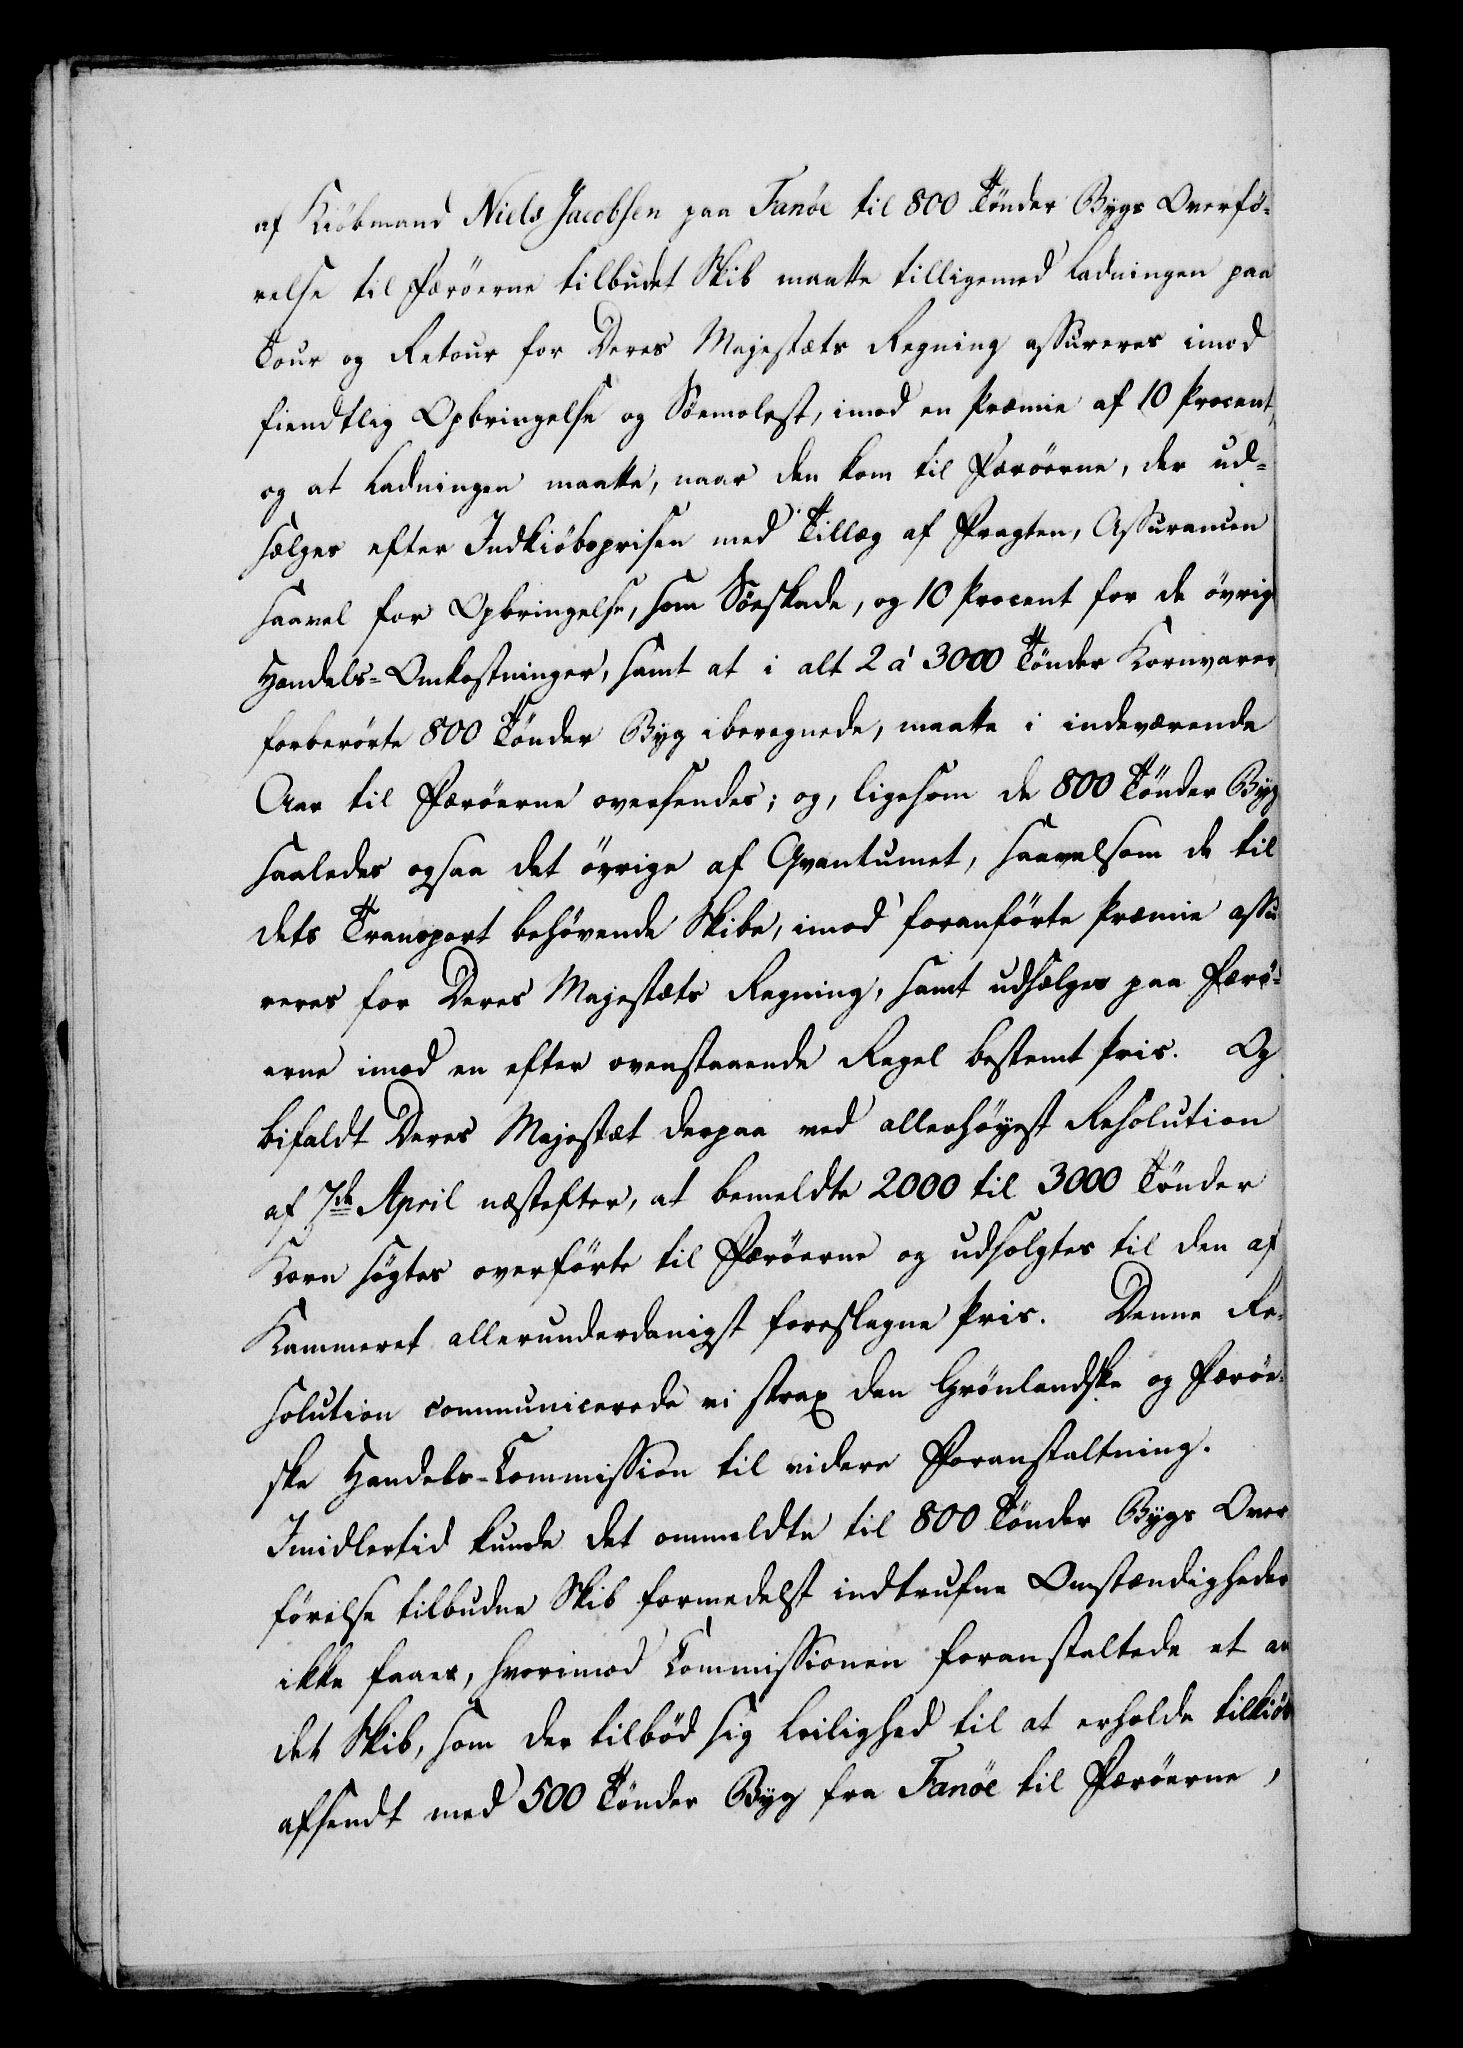 af Kiöbmand Niels Jacobsen paa Fanöe til 800 Tönder Bygs Overfö-
relse til Færöerne tilbudet Skib maatte tilligemed Ladningen paa
Tour og Retour for Deres Majestæts Regning assureres imod
fiendtlig Opbringelse og Söemolest, imod en Præmie af 10 Procent,
og at Ladningen maatte, naar den kom til Færöerne, der ud-
sælges efter Indkiöbsprisen med Tillæg af Fragten, Assurancen
saavel for Opbringelse, som Söeskade, og 10 Procent for de övrige
Handels-Omkostninger, samt at i alt 2 à 3000 Tönder Kornvarer,
forberörte 800 Tönder Byg iberegnede, maatte i indeværende
Aar til Færöerne oversendes; og, ligesom de 800 Tönder Byg
saaledes ogsaa det övrige af Qvantumet, saavelsom de til
dets Transport behövende Skibe, imod foranförte Præmie assu
reres for Deres Majestæts Regning, samt udsælges paa Færö-
erne imod en efter ovenstaaende Regel bestemt Pris. Og
bifaldt Deres Majestæt derpaa ved allerhöyest Resolution
af 7de April næstefter, at bemeldte 2000 til 3000 Tönder
Korn sögtes overförte til Færöerne og udsolgtes til den af
Kammeret allerunderdanigst foreslagne Pris. Denne Re-
solution communicerede vi strax den Grönlandske og Færöe-
ske Handels-Commission til videre Foranstaltning.
Imidlertid kunde det ommeldte til 800 Tönder Bygs Over
förelse tilbudne Skib formedelst indtrufne Omstændigheder
ikke faaes, hvorimod Commissionen foranstaltede et an
det Skib, som der tilböd sig Leilighed til at erholde tilkiöb
afsendt med 500 Tönder Byg fra Fanöe til Færöerne,